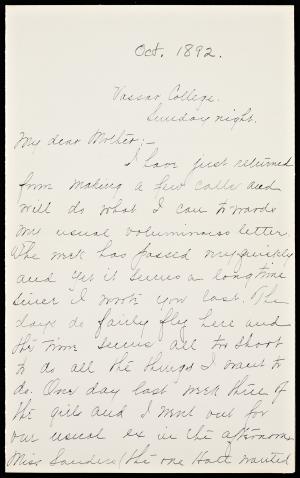 Oct. 1892.
Vassar College.
Sunday night.
My dear Mother;-
I have just returned
from making a few calls and
will do what I can towards
my usual voluminous letter.
The week has passed very quickly
and yet it seems a long time
since I wrote you last. The
days do fairly fly here and
the time seems all too short
to do all the things I want to
do. One day last week three of
the girls and I went out for
our usual ex in the afternoon
Miss Sanders (the one Hatt wanted